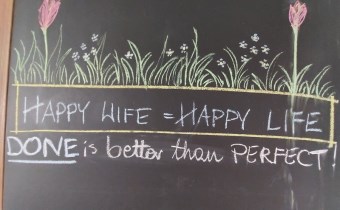 HAPPY WIFE = HAPPY LIFE
DONE is better than PERFECT!